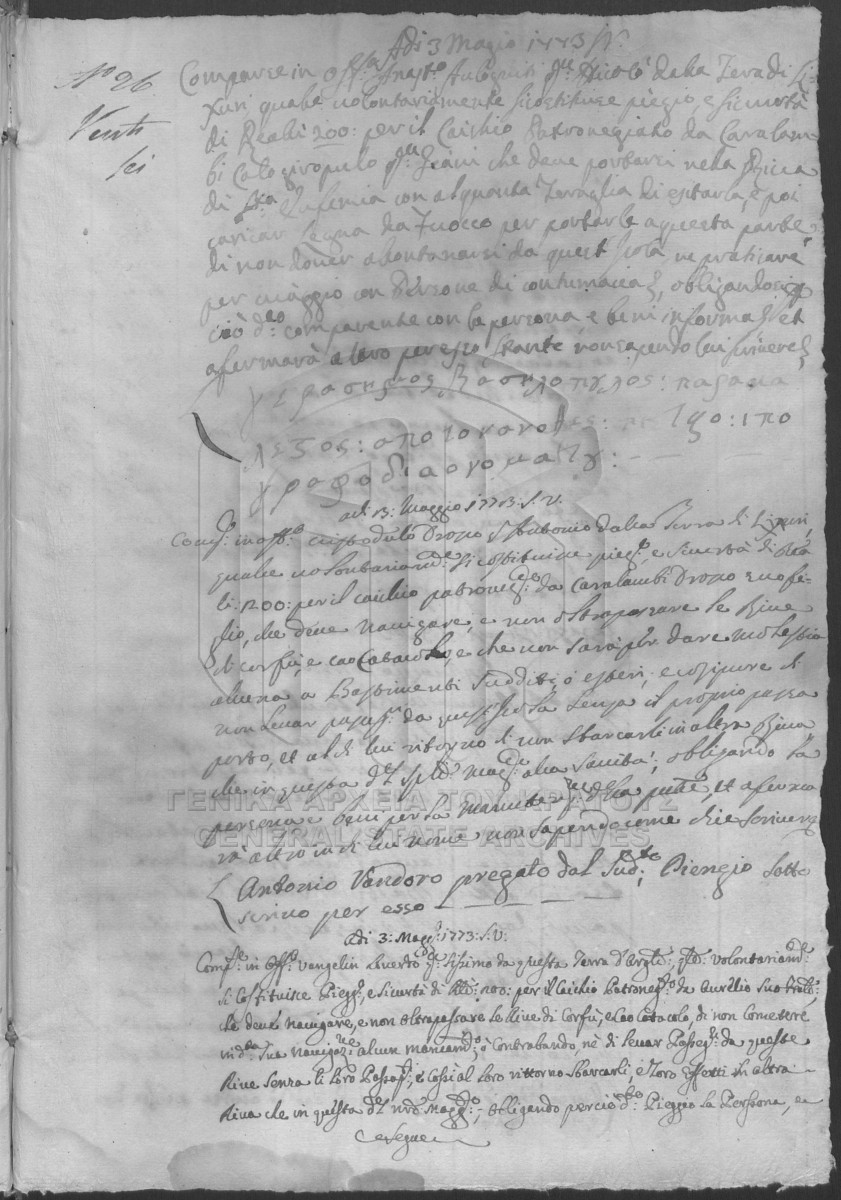 Adi 3 Magio 1773 S.V.
N.º 26.
Venti
sei
Comparse in Off.ª Anast.º qu. Nicolò dalla Terra di Li-
xuri quale volontariamente si costituisse piegio, e sicurtà
di Reali 200: per il Caichio Patronegiato da Caralam-
bi Calogiropulo qu. Giani che deve portarsi nella Riva
di S.ta Eufemia con alquanta Teraglia di esitarla, e poi
caricar legna da Fuocco per portarle a questa parte
di non dover alontanarsi da quest'Isola ne praticare
per viaggio con Persone di contumacia, obligandosi p
ciò d.to comparente con la persona, e beni in forma et
afermarà altro per esso stante non sapendo lui scrivere
γερασημος βασηλοπȣλος: παρακα
λεμος: απο τον ανοθεν: ηπο
γραφο δια ονοματȣ: —
adi 13: Maggio 1773: S.V.
Comp.e in off.º Dromo S. Antonio dalla Terra di Lixuri,
quale volontariam.e si costituisce pieg.º, e sicurtà di Rea
li: 200: per il caichio patroneg.to da Caralambi Dromo suo fi-
glio, che deve navigare, e non oltrapassare le Rive
di Corfù, e Cao Catacolo, e che non sarà per dare molestia
alcuna a Bastimenti sudditi, o esteri, e cosi pure di
non levar passag.i da quest'Isola senza il proprio passa
porto, et al di lui ritorno di non sbarcarli in altra Riva
che in questa del Spl.e Mag.to alla Sanità, obligando la
persona e beni per la manuten.ne della pnte, et afirma
rà altro in di lui nome non sapendo come disse scrivere
Antonio Vandoro pregato dal sud.tto Piengio sotto
scrivo per esso — — — — —
Adi 3: Magg.º 1773: S.V.
Comp.e in Off.º Vangelin Loverdo qu. Sissimo da questa Terra d'Argli: qle volontariam.e
si costituisce Piegg.º, e sicurtà di Rli: 200: per il Caichio Patroneg.to da Aurelio suo Fratello,
che deve navigare, e non oltrapassare le Rive di Corfù, e Cao Catacolo, di non comettere
in d.ta sua navigaz.ne alcun mancam.to, ò Contrabando nè di levar Passeg.i da queste
Rive senza li loro Passap.i, e cossì al loro rittorno sbarcarli, e loro effetti in altra
Riva che in questa del nro Magg.to, obligando perciò d.to Pieggio la Persona, e
segue
ΓΕΝΙΚΑ ΑΡΧΕΙΑ ΤΟΥ ΚΡΑΤΟΥΣ
GENERAL STATE ARCHIVES